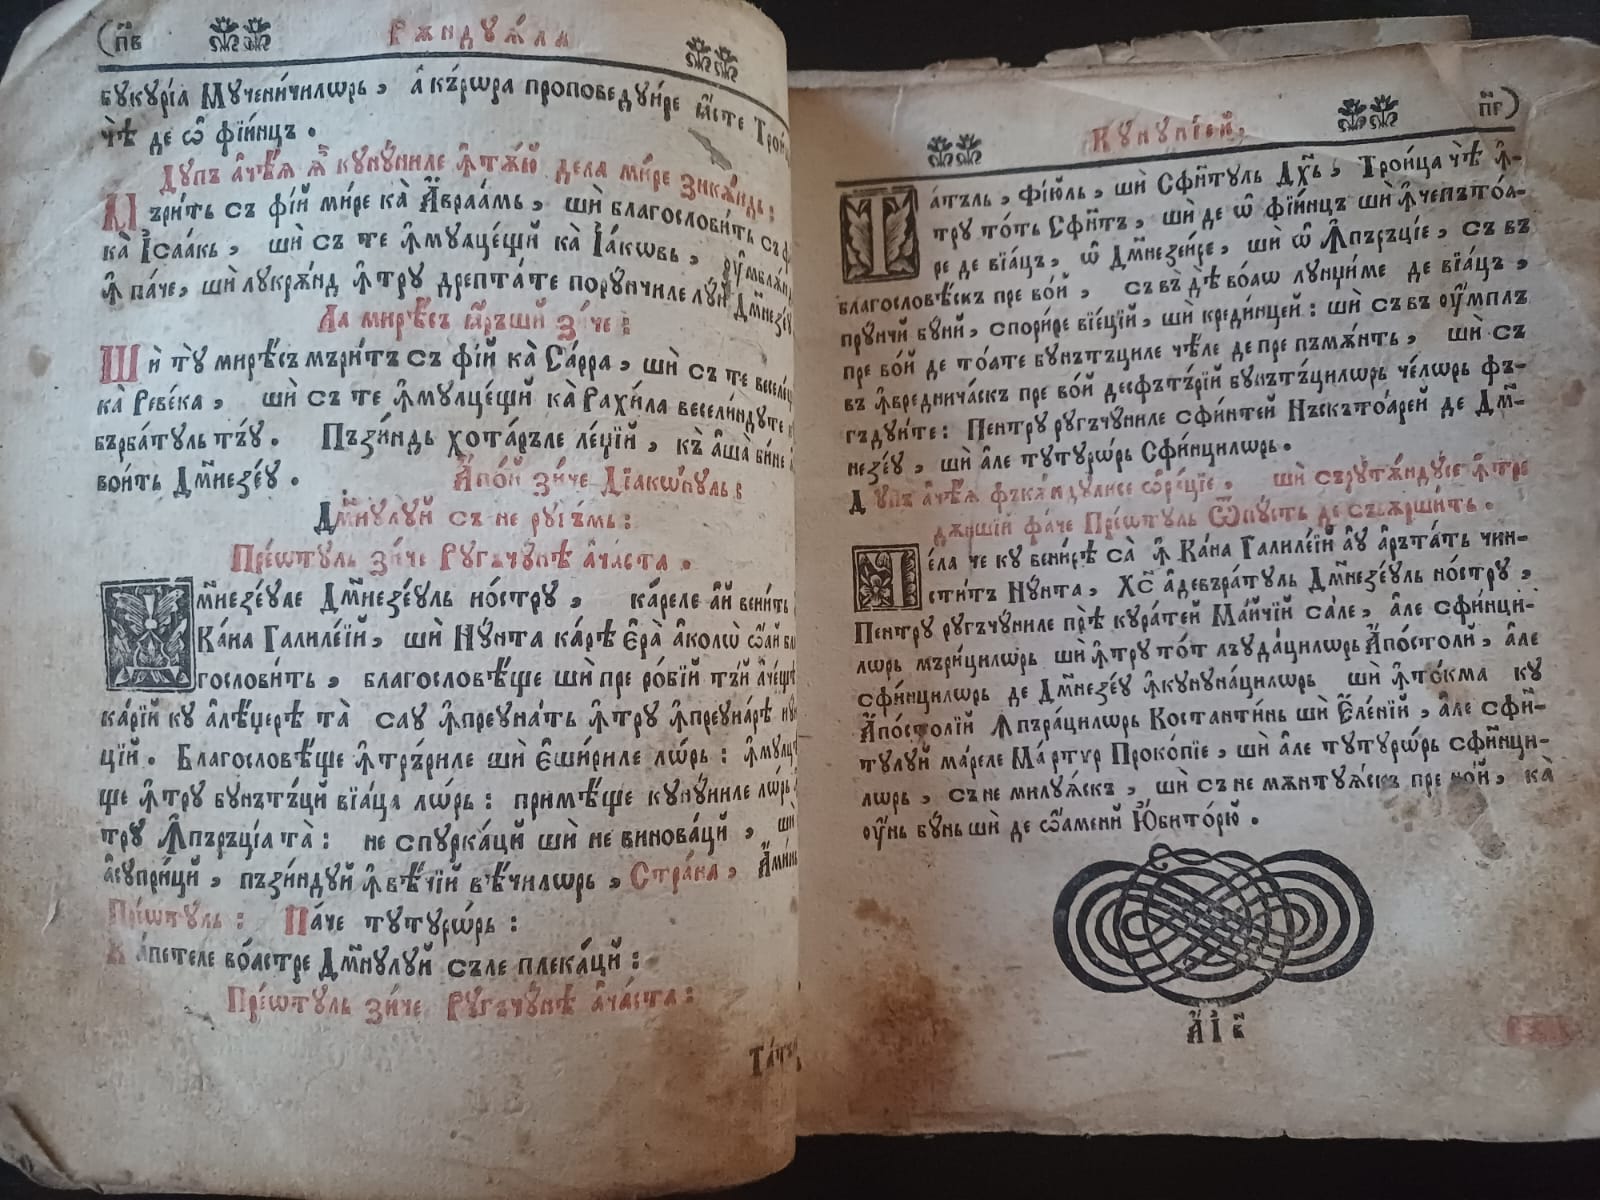 (п҃в
Рѫндуѧла
букурі́а Му́чени́чилѡрь, а҆ кѣ́рѡра проповедуи́ре ꙗ҆́сте Трои́
чѣ де ѡ҆ фїи́нцъ.
Дупъ а҆чѣ́ѧ ꙗ҆ куну́ниле ꙟ҆тѫ́ю̆ дела ми́ре зикѫ́ндь:
Мъри́ть съ фі́й ми́ре ка̀ А҆враа́мь, шѝ благослови́ть съ ф
ка̀ І҆саа́кь, шѝ съ те ꙟ҆мулце́щй ка̀ І҆а́кѡвь, оу҆мблѫ́нд
ꙟ҆ па́че, шѝ лукрѫ́нд ꙟ҆тру дрепта́те пору́нчиле лу́й Дм҃незеу́
Ла мирѣ́съ ꙗ҆ръшй зи́че:
Шѝ ту̀ мирѣ́съ мъри́тъ съ фі́й ка̀ Са́рра, шѝ съ те веселе́щ
ка̀ Реве́ка, шѝ съ те ꙟ҆мулце́щй ка̀ Рахи́ла весели́ндуте
бърба́туль тъ́у. Пъзи́ндь хота́ръле ле́џїй, къ а҆ша̀ би́не
вои́ть Дм҃незе́у.
А҆по́й зи́че Дїако́нуль:
Дм҃нулу́й съ не руга́мь:
Прео́туль зи́че Ругъчу́нѣ а҆ча́ста.
Дм҃незе́уле Дм҃незе́уль но́стру, ка́реле а҆й вени́ть
Ка́на Галиле́їй, шѝ Ну́нта ка́рѣ є҆ра̀ а҆коло̀ ѡ҆ай бла
гослови́ть, благословѣ́ще шѝ пре ро́бїй тъ́й а҆че́щѣ
ка́рїй ку а҆лѣ́џерѣ та̀ сау ꙟ҆преуна́ть ꙟ҆тру ꙟ҆преуна́рѣ ну́н
цїй. Благословѣ́ще ꙟ҆тръ́риле шѝ є҆ши́риле ло́рь: ꙟ҆мулцѣ
ще ꙟ҆тру бунътъ́цй вїа́ца ло́рь: примѣ́ще куну́ниле ло́рь
тру ꙟ҆пъръці́а та̀: не спурка́цй шѝ не винова́цй, шѝ
а҆супри́цй, пъзи́ндуй ꙟ҆ вѣ́чїй вѣ́чилѡрь, Стра́на, А҆ми́нь
Прео́туль: Па́че туту́рѡрь:
Ка́петеле во́астре Дм҃нулу́й съле плека́цй:
Прео́туль зи́че Ругъчу́нѣ а҆ча́ста:
Та́тъл
Кунунїей,
п҃г)
Та́тъль, фі́юль, шѝ Сфи҃нтуль Дх҃ь, Трои́ца чѣ ꙟ҆-
тру то́ть Сфи҃нтъ, шѝ де ѡ҆ фїи́нцъ шѝ ꙟ҆чепъто́а-
ре де вїа́цъ, ѡ҆ Дм҃незеи́ре, шѝ ѡ҆ ꙟ҆пъръці́е, съ въ
благословѣ́скъ пре во́й, съ въ дѣ́ во́аѡ лунџи́ме де вїа́цъ,
пру́нчй бу́нй, спори́ре віе́цїй, шѝ креди́нцей: шѝ съ въ оу҆мплъ
пре во́й де то́ате бунътъ́циле чѣ́ле де пре пъмѫ́нть, шѝ съ
въ ꙟ҆вредниче́скъ пре во́й десфътъ́рїй бунътъ́цилѡрь че́лѡрь фъ-
гъдуи́те: Пе́нтру ругъчу́ниле сфи́нтей Нъскъто́арей де Дм҃-
незе́у, шѝ а҆ле туту́рѡрь Сфи́нцилѡрь.
Дупъ а҆чѣ́ѧ фъкѫ́ндулисе ѡ҆ре́ціе, шѝ съруту́ндусе ꙟ҆тре
дѫ́ншїй фа́че Прео́туль Ѿпу́сть де съвѫрши́ть.
Че́ла че ку вени́рѣ са̀ ꙟ҆ Ка́на Галиле́їй а҆у а҆ръта́ть чин-
сти́тъ Ну́нта, Хс҃ а҆девъра́туль Дм҃незе́уль но́стру,
Пе́нтру ругъчу́ниле прѣ кура́тей Ма́йчїй са́ле, а҆ле сфи́нци-
лѡрь мъри́цилѡрь шѝ ꙟ҆тру то́т лъуда́цилѡрь А҆по́столй, а҆ле
сфи́нцилѡрь де Дм҃незе́у ꙟ҆кунуна́цилѡрь шѝ ꙟ҆то́кма ку
А҆по́столїй ꙟ҆пъра́цилѡрь Костанти́нь шѝ Є҆ле́нїй, а҆ле сфи҃н-
тулуй ма́реле Ма́ртѵр Проко́піе, шѝ а҆ле туту́рѡрь сфи́нци-
лѡрь, съ не милуѧ́скъ, шѝ съ не мѫнтуѧ́скъ пре но́й, ка̀
оу҆нь бу́нь шѝ де ѡ҆а́менй Ю҆бито́рю.
А҆ І в҃